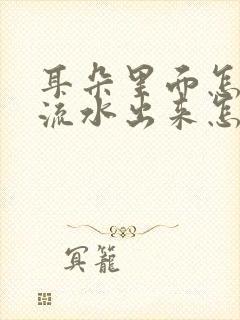 耳朵里面怎
流水出来怎
冥笼